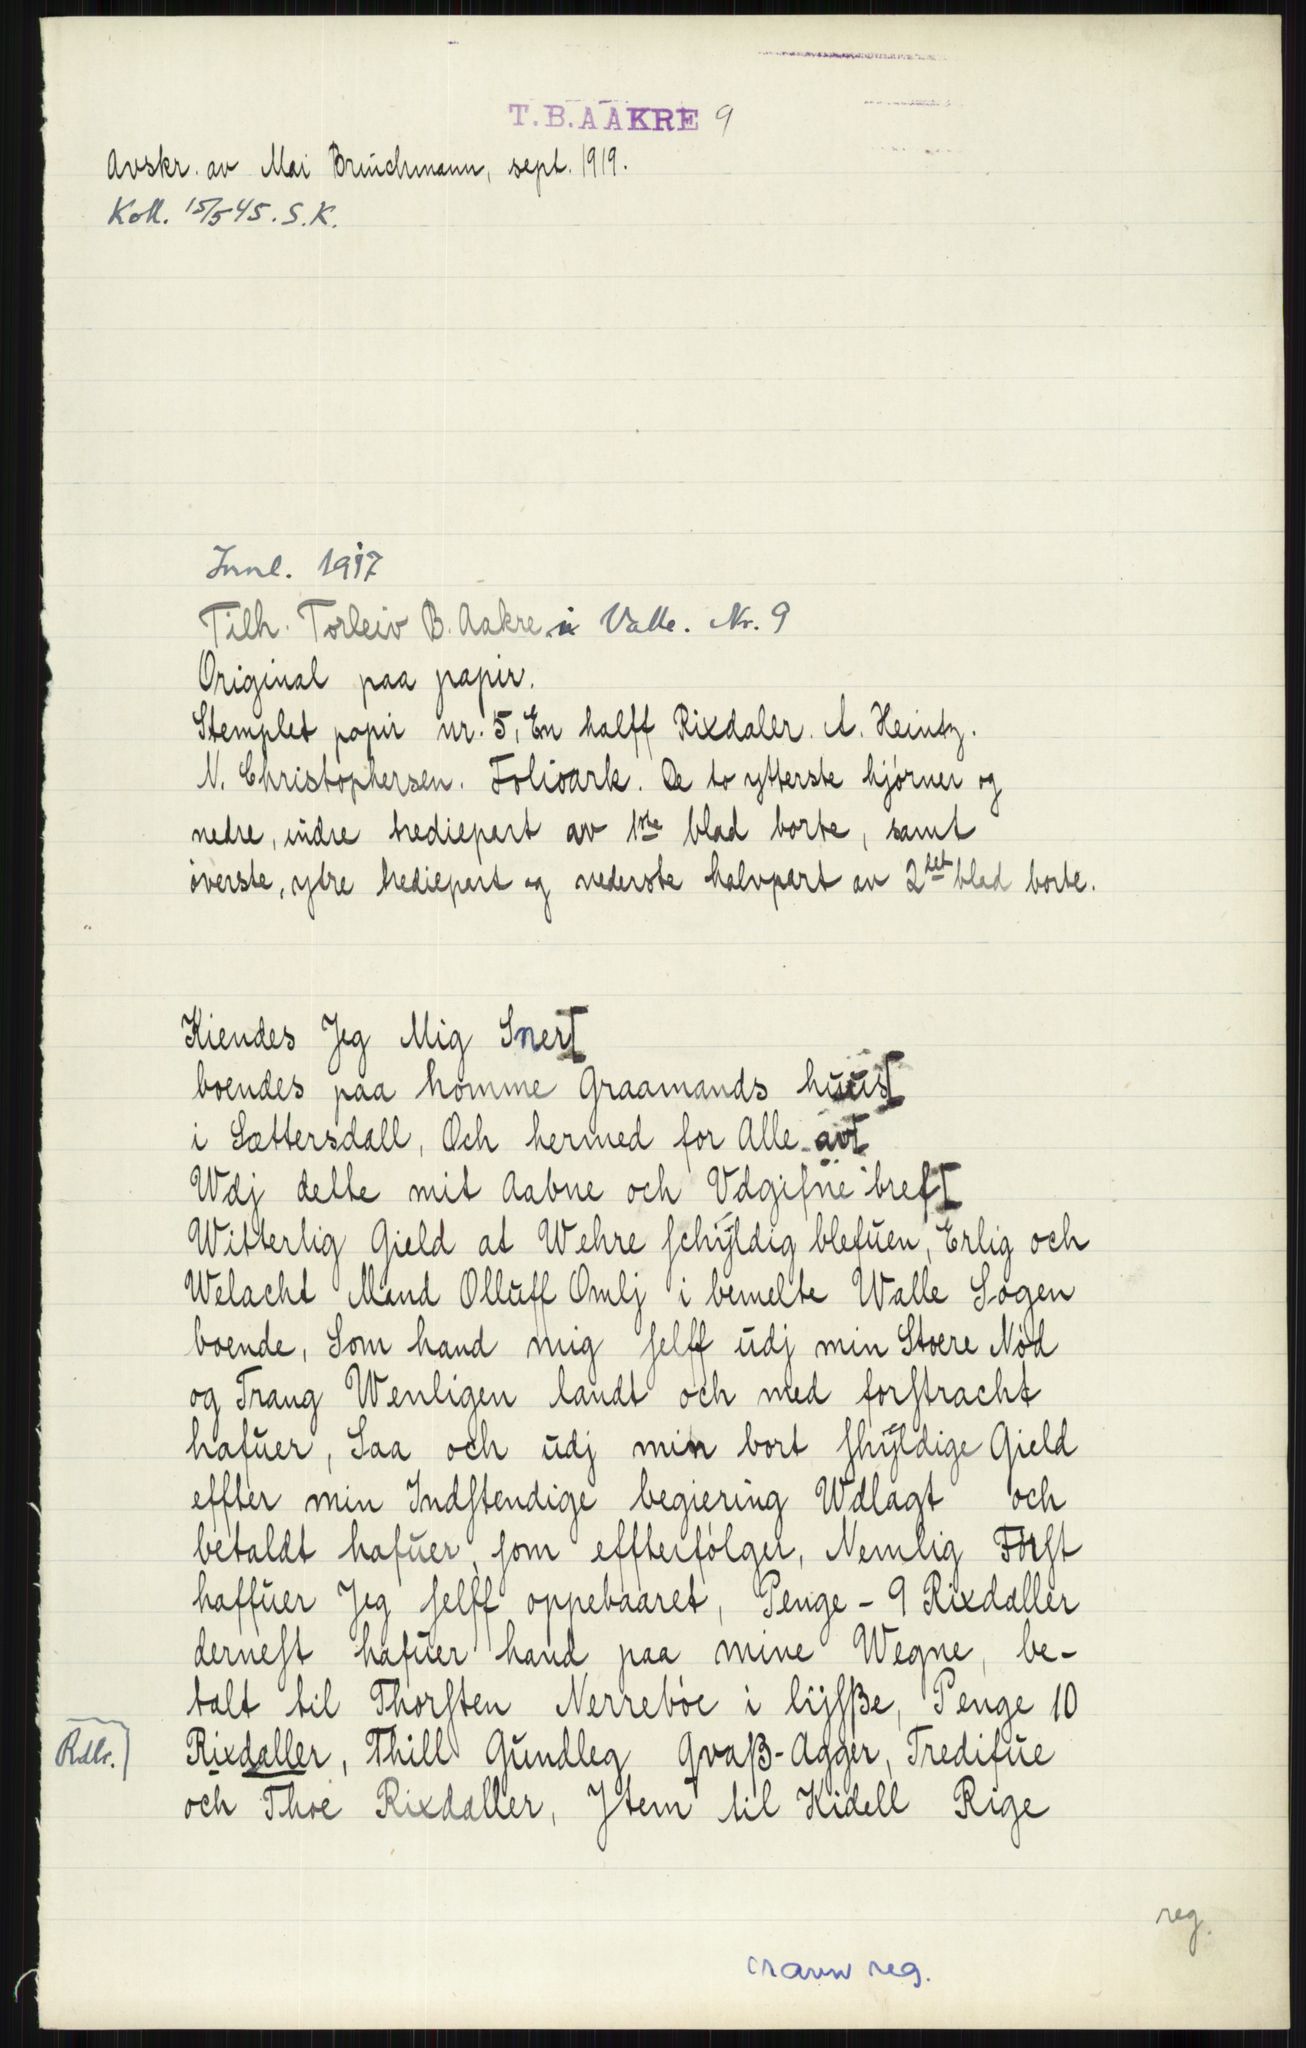 T.B.AAKRE 9
Avskr. av Mai Bruchmann, sept. 1919.
Koll. 15/5 45. S.K.
Innl. 1917
Tilh. Torleiv B. Aakre i Valle. Nr. 9
Original paa papir.
Stemplet papir nr. 5, En halff Rixdaler. A. Heintz.
N. Christophersen. Folioark. De to ytterste hjørner og
nedre, indre trediepart av 1ste blad borte, samt
øverste, ytre trediepart og nederste halvpart av 2det blad borte.
Kiendes Jeg Mig Sner[
boendes paa homme Graamands huus[
i Sættersdall, Och hermed for Alle av[
Wdj dette mit Aabne och Vdgifne bref[
Witterlig Gield at Wehre schÿldig blefuen, Erlig och
Welacht Mand Olluff Omlj i bemelte Walle Sogen
boende, Som hand mig selff udj min Stoere Nød
og Trang Wenligen landt och med forstracht
hafuer, Saa och udj min bort shÿldige Gield
effter min Indstendige begiering Wdlagt och
betaldt hafuer, som effterfølger, Nemlig Først
haffuer Jeg selff oppebaaret, Penge - 9 Rixdaller
dernest hafuer hand paa mine Wegne, be-
talt til Thorsten Nerrebøe i lÿsße, Penge 10
Rdlr.) Rixdaller, Thill Gundleg Qvaß-Agger, Tredifue
och Thoe Rixdaller, Jtem til Kidell Rige
reg.
reg.